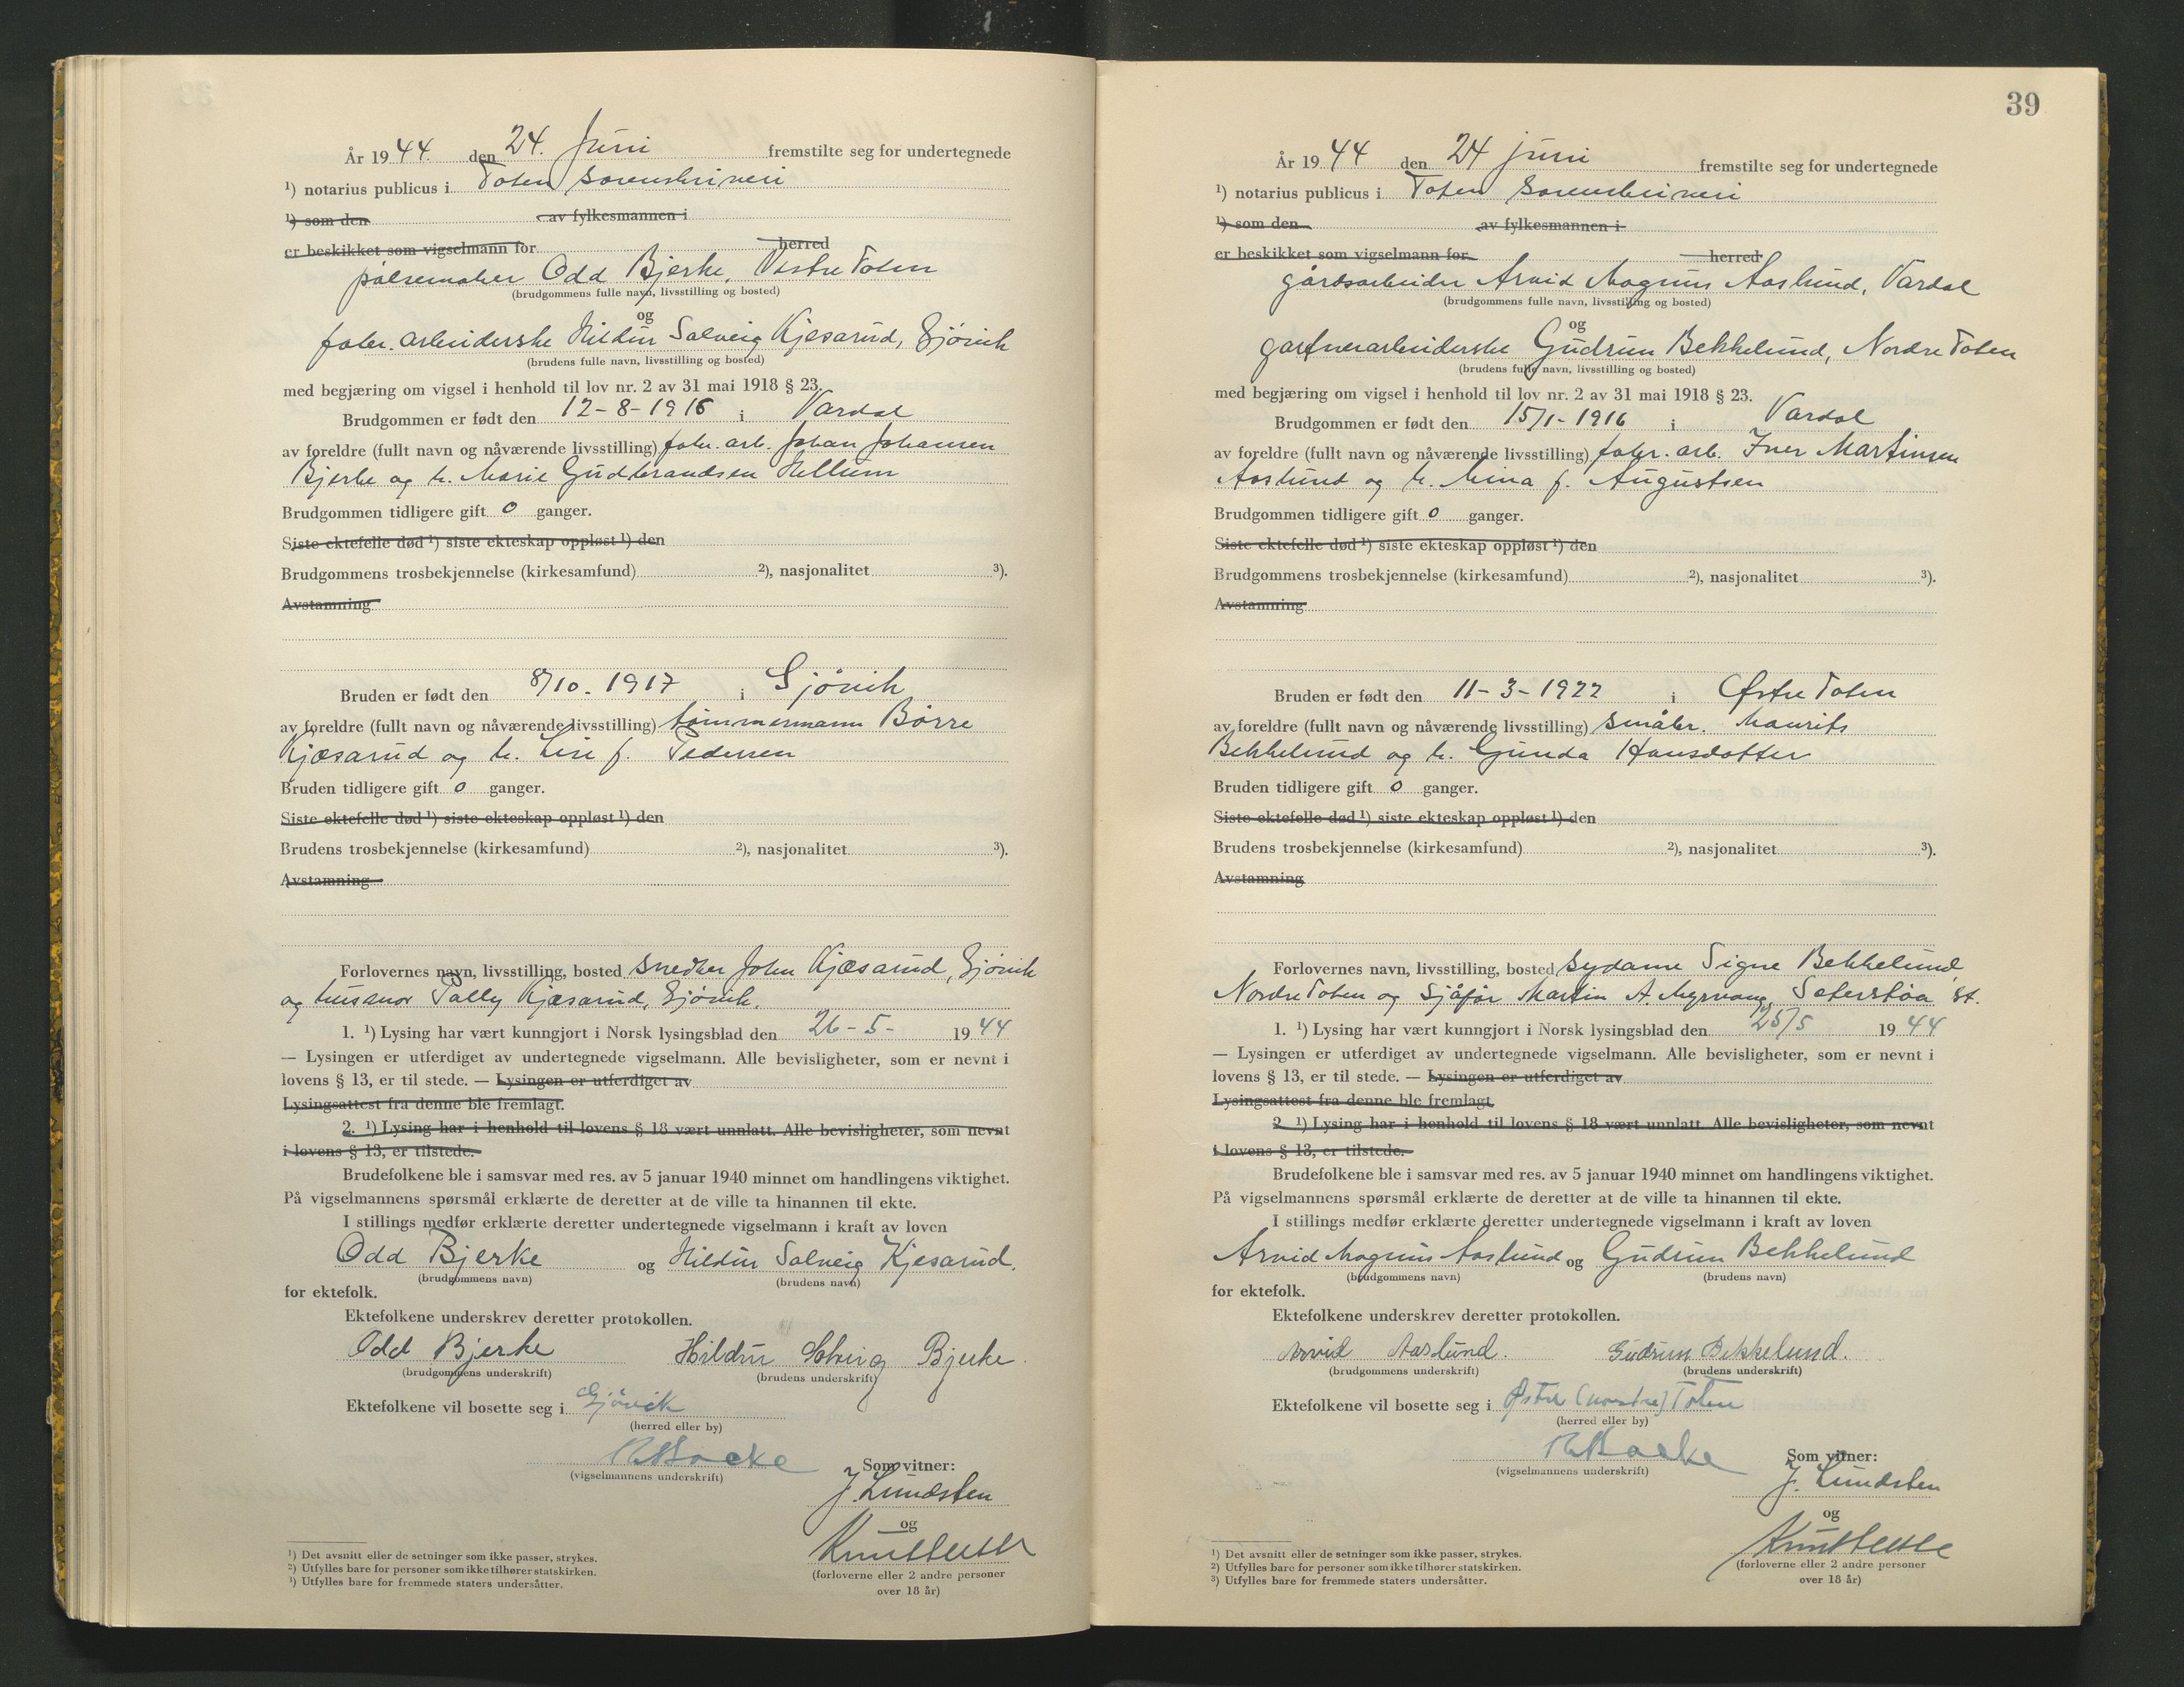 År 19 44. den 24. Juni fremstilte seg for undertegnede
¹) notarius publicus i Toten sorenskriveri
¹) som den av fylkesmannen i
er beskikket som vigselmann for herred
pølsemaker Odd Bjerke, Vestre Toten
(brudgommens fulle navn, livsstilling og bosted)
og
fabr. arbeiderske Hildur Solveig Kjesarud, Gjövik
(brudens fulle navn, livsstilling og bosted)
med begjæring om vigsel i henhold til lov nr. 2 av 31 mai 1918 § 23.
Brudgommen er født den 12-8-1916 i Vardal
av foreldre (fullt navn og nåværende livsstilling) fabr. arb. Johan Johansen
Bjerke og h. Marie Gudbrandsen Hellum
Brudgommen tidligere gift 0 ganger.
Siste ektefelle død ¹) siste ekteskap oppløst ¹) den
Brudgommens trosbekjennelse (kirkesamfund) ²), nasjonalitet ³).
Avstamning
Bruden er født den 8/10. 1917 i Gjövik
av foreldre (fullt navn og nåværende livsstilling) tømmermann Börre
Kjæsarud og h. Lise f. Pedersen
Bruden tidligere gift 0 ganger.
Siste ektefelle død ¹) siste ekteskap oppløst ¹) den
Brudens trosbekjennelse (kirkesamfund) ²), nasjonalitet ³).
Avstamning
Forlovernes navn, livsstilling, bosted snedker John Kjæsarud, Gjövik
og husmor Pally Kjæsarud, Gjövik.
1. ¹) Lysing har vært kunngjort i Norsk lysingsblad den 26-5- 19 44
— Lysingen er utferdiget av undertegnede vigselmann. Alle bevisligheter, som er nevnt i
lovens § 13, er til stede. — Lysingen er utferdiget av
Lysingsattest fra denne ble fremlagt.
2. ¹) Lysing har i henhold til lovens § 18 vært unnlatt. Alle bevisligheter, som nevnt
i lovens § 13, er tilstede.
Brudefolkene ble i samsvar med res. av 5 januar 1940 minnet om handlingens viktighet.
På vigselmannens spørsmål erklærte de deretter at de ville ta hinannen til ekte.
I stillings medfør erklærte deretter undertegnede vigselmann i kraft av loven
Odd Bjerke og Hildur Solveig Kjesarud.
(brudgommens navn) (brudens navn)
for ektefolk.
Ektefolkene underskrev deretter protokollen.
Odd Bjerke Hildur Solveig Bjerke.
(brudgommens underskrift) (brudens underskrift)
Ektefolkene vil bosette seg i Gjövik
(herred eller by)
(vigselmannens underskrift)
Som vitner:
J. Lundsten
og
(forloverne eller 2 andre personer
over 18 år)
¹) Det avsnitt eller de setninger som ikke passer, strykes.
²) Utfylles bare for personer som ikke tilhører statskirken.
³) Utfylles bare for fremmede staters undersåtter.
39
År 19 44 den 24 juni fremstilte seg for undertegnede
¹) notarius publicus i Toten sorenskriveri
¹) som den av fylkesmannen i
er beskikket som vigselmann for herred
gårdsarbeider Arvid Magnus Aaslund, Vardal
(brudgommens fulle navn, livsstilling og bosted)
og
gartnerarbeiderske Gudrun Bekkelund, Nordre Toten
(brudens fulle navn, livsstilling og bosted)
med begjæring om vigsel i henhold til lov nr. 2 av 31 mai 1918 § 23.
Brudgommen er født den 15/1-1916 i Vardal
av foreldre (fullt navn og nåværende livsstilling) fabr. arb. Iver Martinsen
Aaslund og h. Mina f. Augustsen
Brudgommen tidligere gift 0 ganger.
Siste ektefelle død ¹) siste ekteskap oppløst ¹) den
Brudgommens trosbekjennelse (kirkesamfund) ²), nasjonalitet ³).
Avstamning
Bruden er født den 11-3-1922 i Østre Toten
av foreldre (fullt navn og nåværende livsstilling) småbr. Maurits
Bekkelund og h. Gunda Hansdatter
Bruden tidligere gift 0 ganger.
Siste ektefelle død ¹) siste ekteskap oppløst ¹) den
Brudens trosbekjennelse (kirkesamfund) ²), nasjonalitet ³).
Avstamning
Forlovernes navn, livsstilling, bosted sydame Signe Bekkelund,
Nordre Toten og sjåfør Martin A. Myrvang, Seterstøa st.
1. ¹) Lysing har vært kunngjort i Norsk lysingsblad den 25/5 19 44
— Lysingen er utferdiget av undertegnede vigselmann. Alle bevisligheter, som er nevnt i
lovens § 13, er til stede. — Lysingen er utferdiget av
Lysingsattest fra denne ble fremlagt
2 ¹) Lysing har i henhold til lovens § 18 vært unnlatt. Alle bevisligheter, som nevnt
i lovens § 13, er tilstede.
Brudefolkene ble i samsvar med res. av 5 januar 1940 minnet om handlingens viktighet.
På vigselmannens spørsmål erklærte de deretter at de ville ta hinannen til ekte.
I stillings medfør erklærte deretter undertegnede vigselmann i kraft av loven
Arvid Magnus Aaslund og Gudrun Bekkelund
(brudgommens navn) (brudens navn)
for ektefolk.
Ektefolkene underskrev deretter protokollen.
Arvid Aaslund. Gudrun Bekkelund.
(brudgommens underskrift) (brudens underskrift)
Ektefolkene vil bosette seg i Østre (nordre) Toten
(herred eller by)
(vigselmannens underskrift)
Som vitner:
J. Lundsten
og
(forloverne eller 2 andre personer
over 18 år)
¹) Det avsnitt eller de setninger som ikke passer, strykes.
²) Utfylles bare for personer som ikke tilhører statskirken.
³) Utfylles bare for fremmede staters undersåtter.